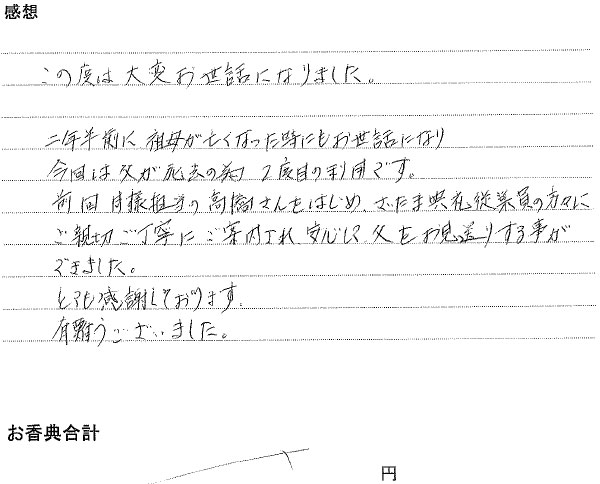 感想
この度は大変お世話になりました。
二年半前に祖母が亡くなった時にもお世話になり
今回は父が死去の為 2度目の利用です。
前回同様担当の高橋さんをはじめ、さいたま典礼従業員の方々に
ご親切ご丁寧にご案内され 安心して父をお見送りする事が
できました。
とても感謝しております。
有難うございました。
お香典合計
円